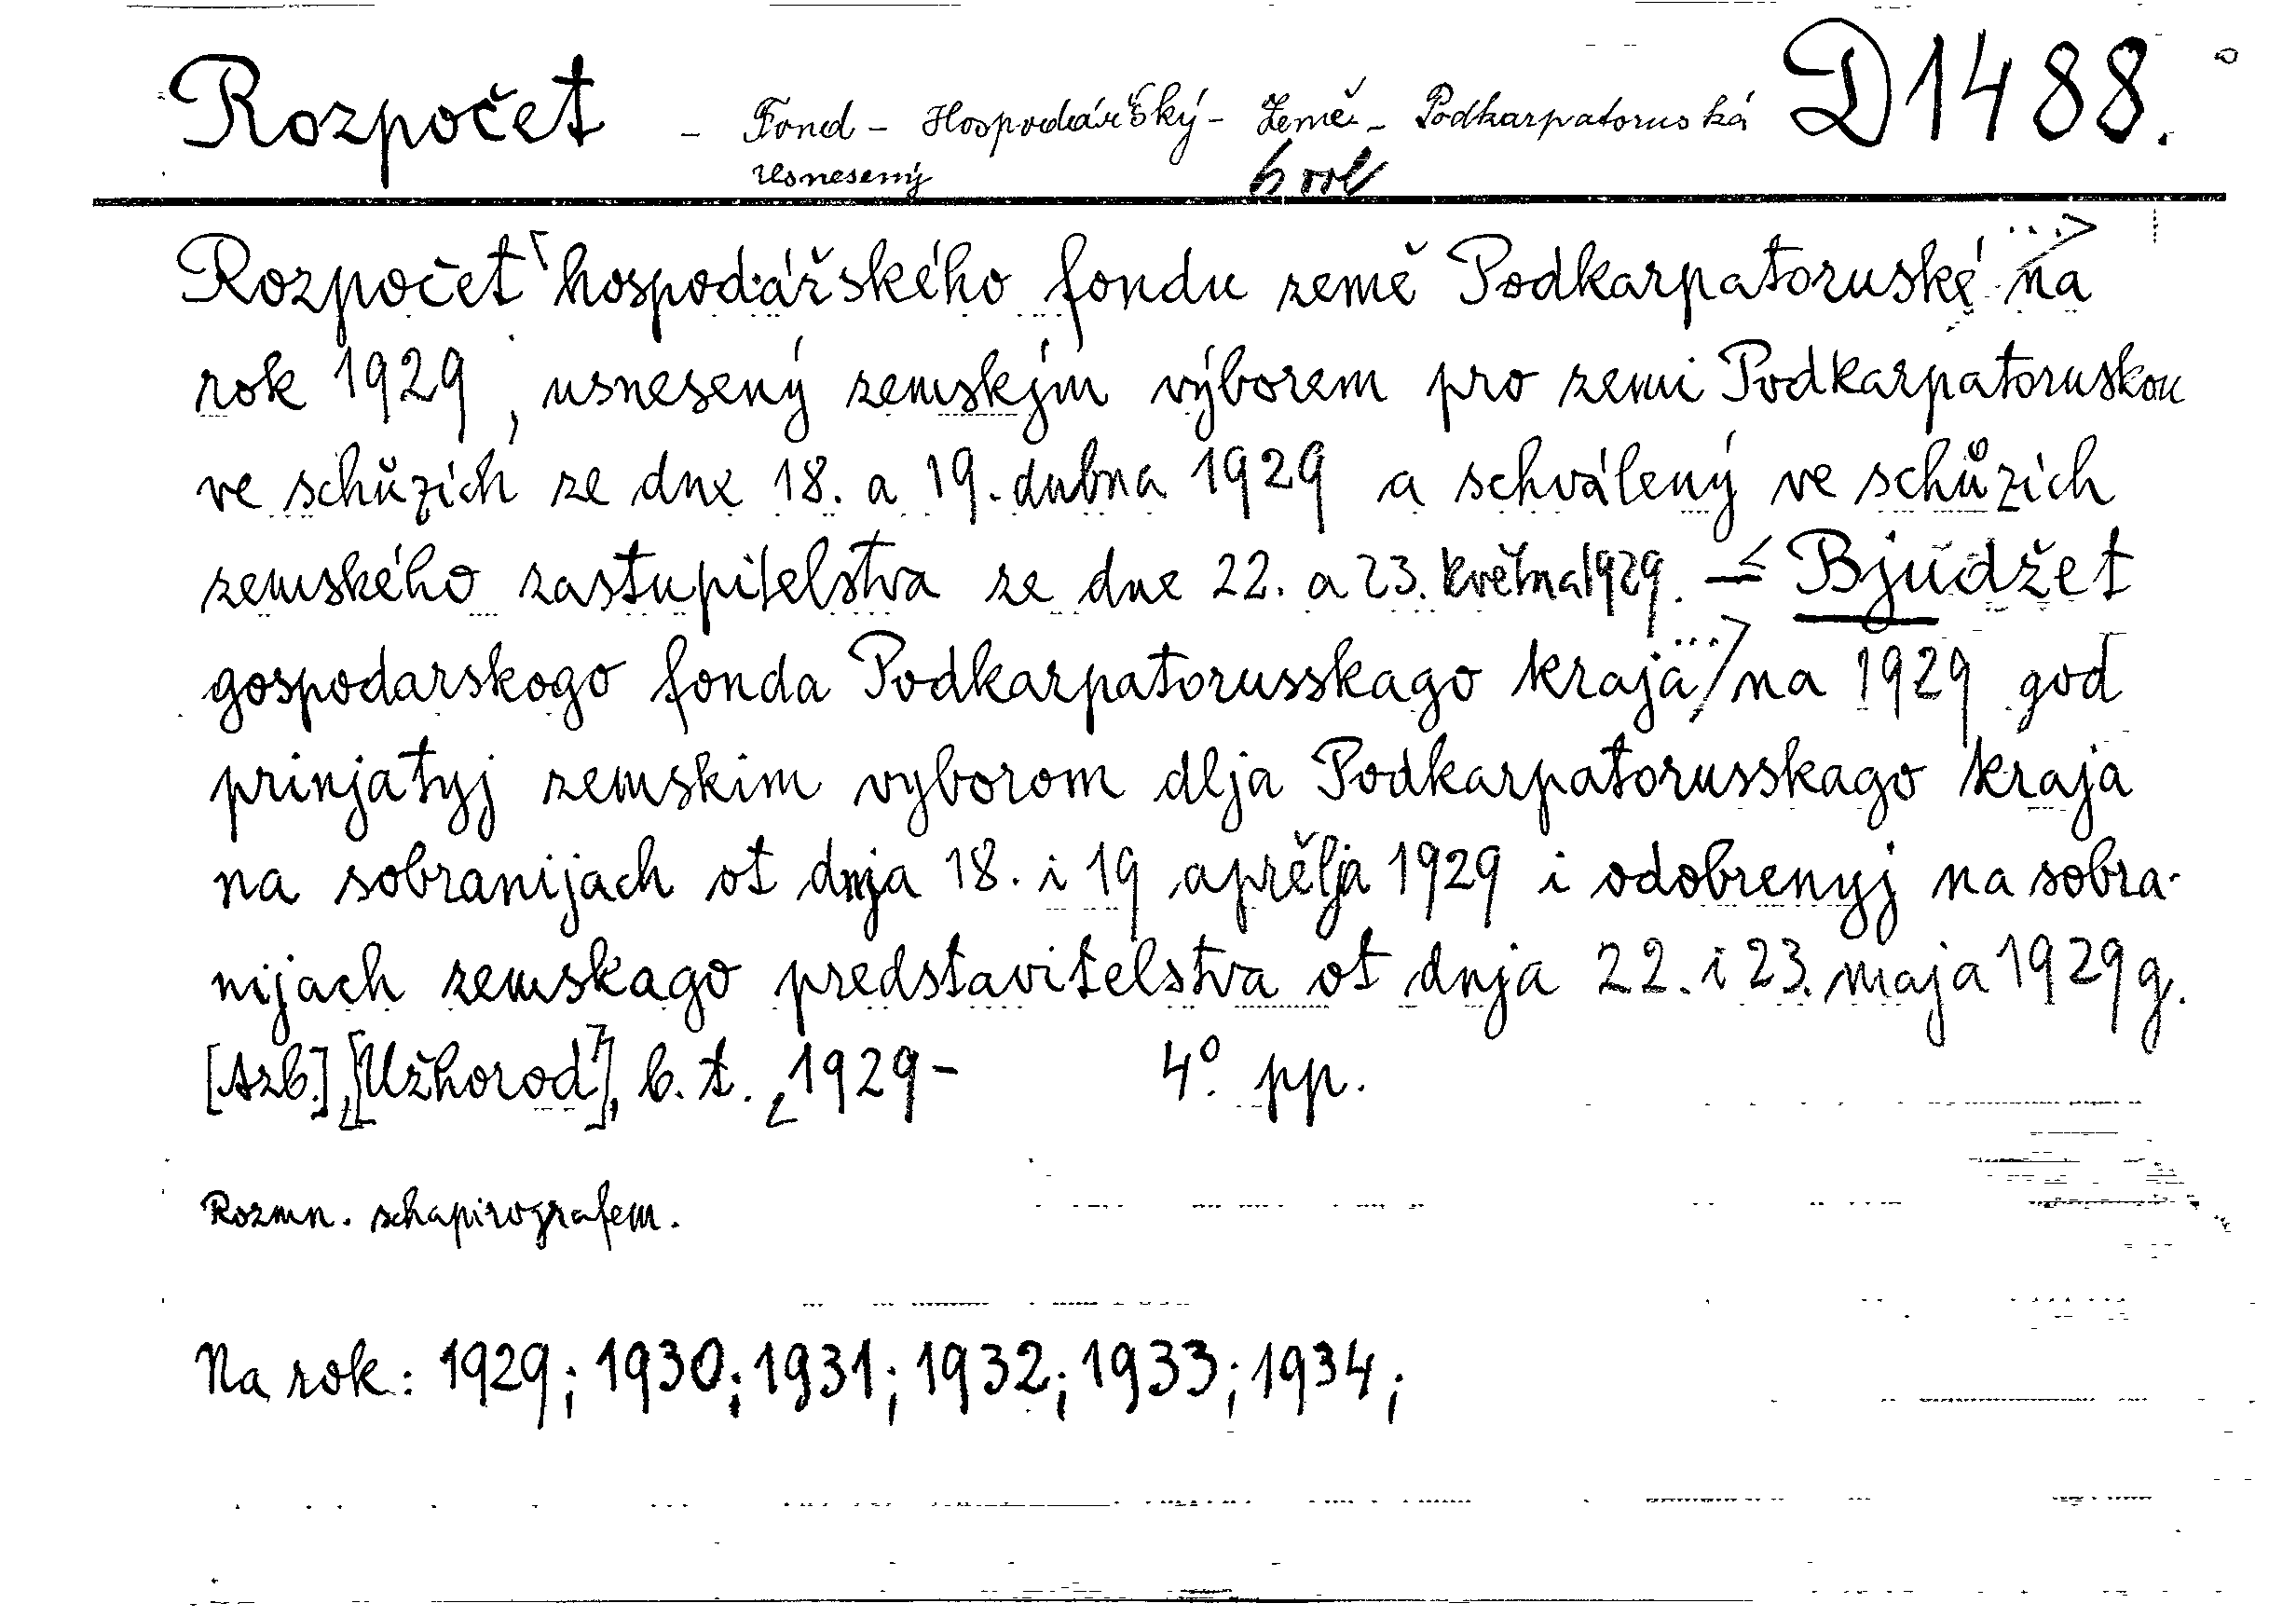 Rozpočet - Fond - Hospodářský - Země - Podkarpatoruská D1488.
Usnesený 6 vol
Rozpočet hospodářského fondu země Podkarpatoruské ... na
rok 1929, usnesený zemským výborem pro zemi Podkarpatoruskou
ve schůzích ze dne 18. a 19. dubna 1929 a schválený ve schůzích
zemského zastupitelstva ze dne 22. a 23. května 1929. = Bjudžet
gospodarskogo fonda Podkarpatorusskago kraja ... na 1929 god
prinjatyj zemskim vyborom dlja Podkarpatorusskago kraja
na sobranijach ot dnja 18. i 19 aprělja 1929 i odobrenyj na sobra-
nijach zemskago predstavitelstva ot dnja 22. i 23. maja 1929 g.
[Azb.], [Užhorod], b. t., 1929 - 4º. pp.
Rozmn. schapirografem.
Na rok: 1929; 1930; 1931; 1932; 1933; 1934;